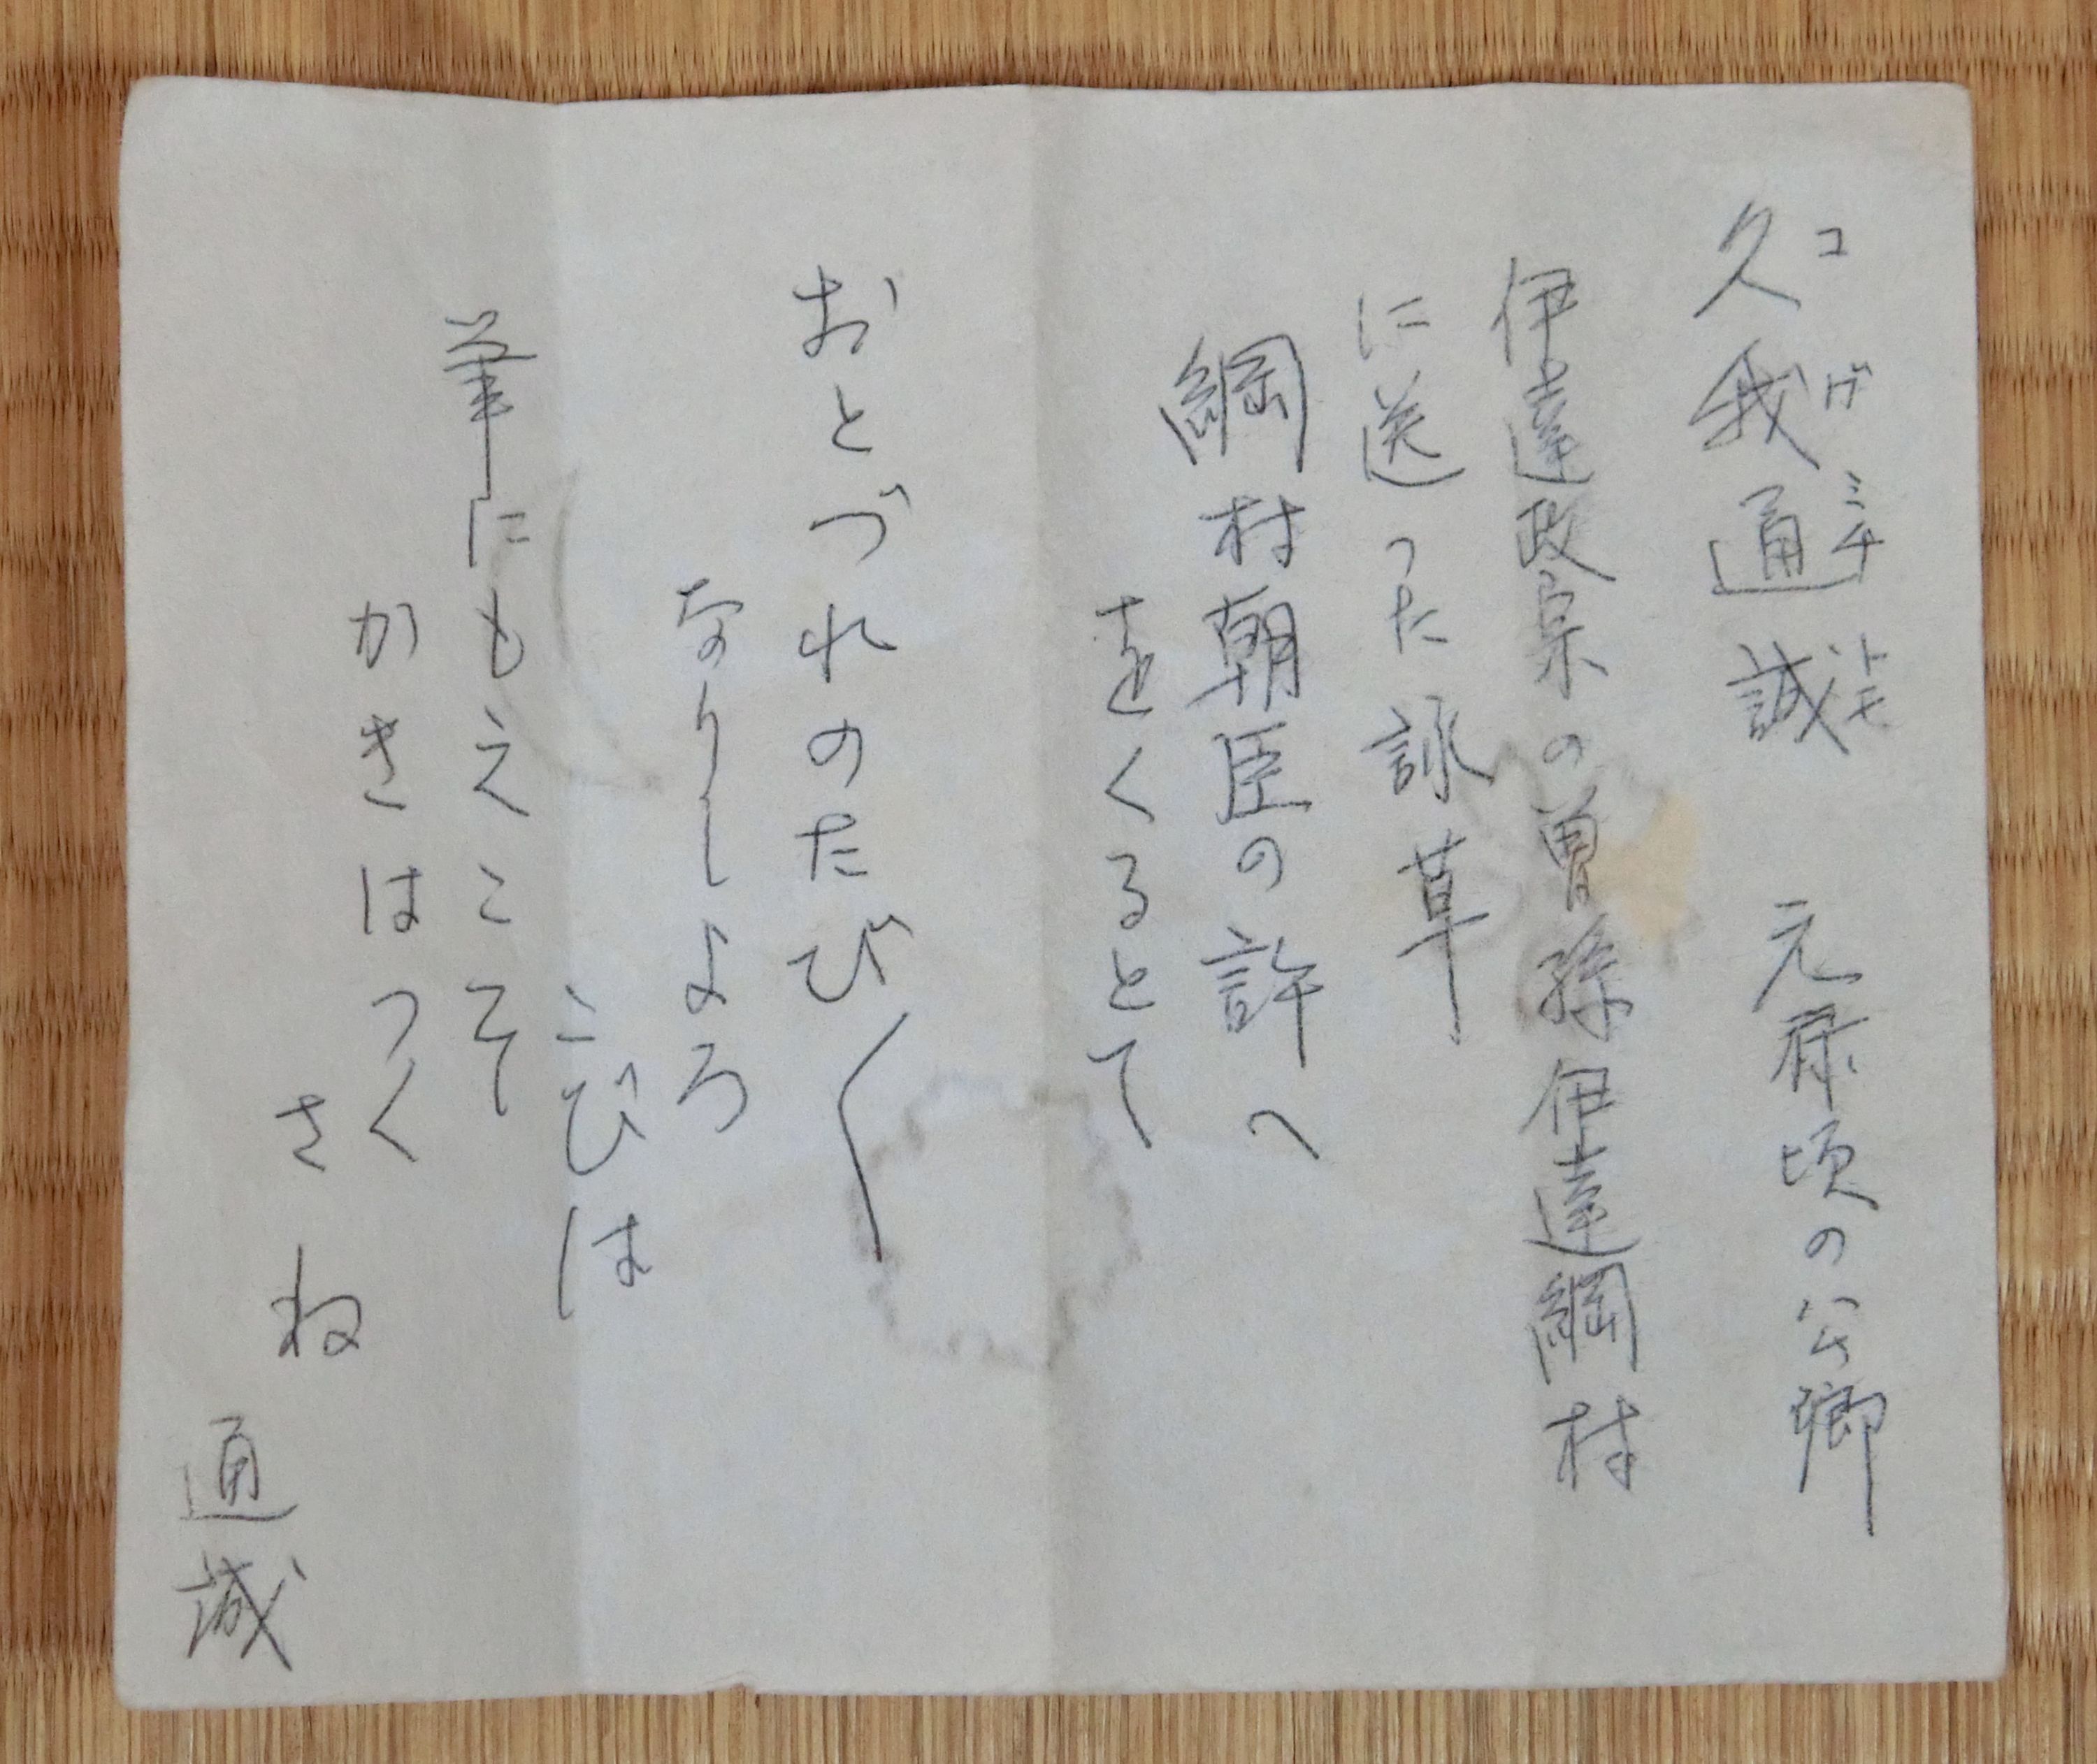 コガミチトモ
久我通誠 元禄頃の公卿
伊達政宗の曽孫伊達綱村
に送った詠草
綱村朝臣の許へ
をくるとて
おとづれのたび〱
なりしよろ
こびは
筆にもえこそ
かきはつく
さね
通誠